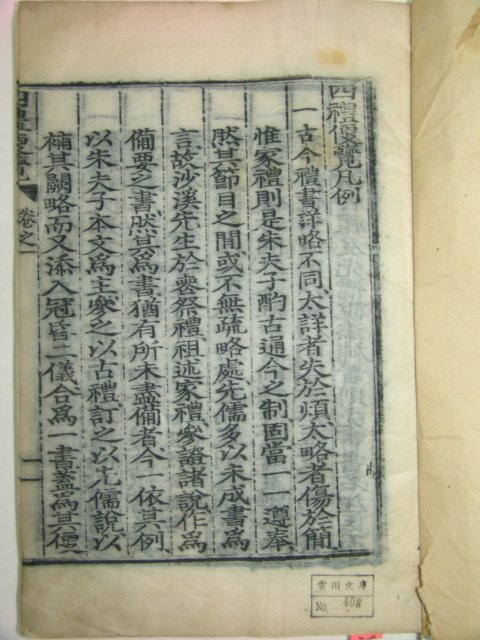 四禮便覽凡例
一古今禮書詳略不同太詳者失於煩太略者傷於簡
惟家禮則是朱夫子酌古通今之制固當一一遵奉
然其節目之間或不無疏略處先儒多以未成書爲
言故沙溪先生於喪祭禮祖述家禮參諸諸說作爲
備要之書然其爲書猶有所未盡備者今一依其例
以朱夫子本文爲主參之以古禮訂之以先儒說以
補其闕略而又添入冠昏二儀合爲一書蓋爲其便
四禮便覽
卷之一
一
雲川文庫
No. 408